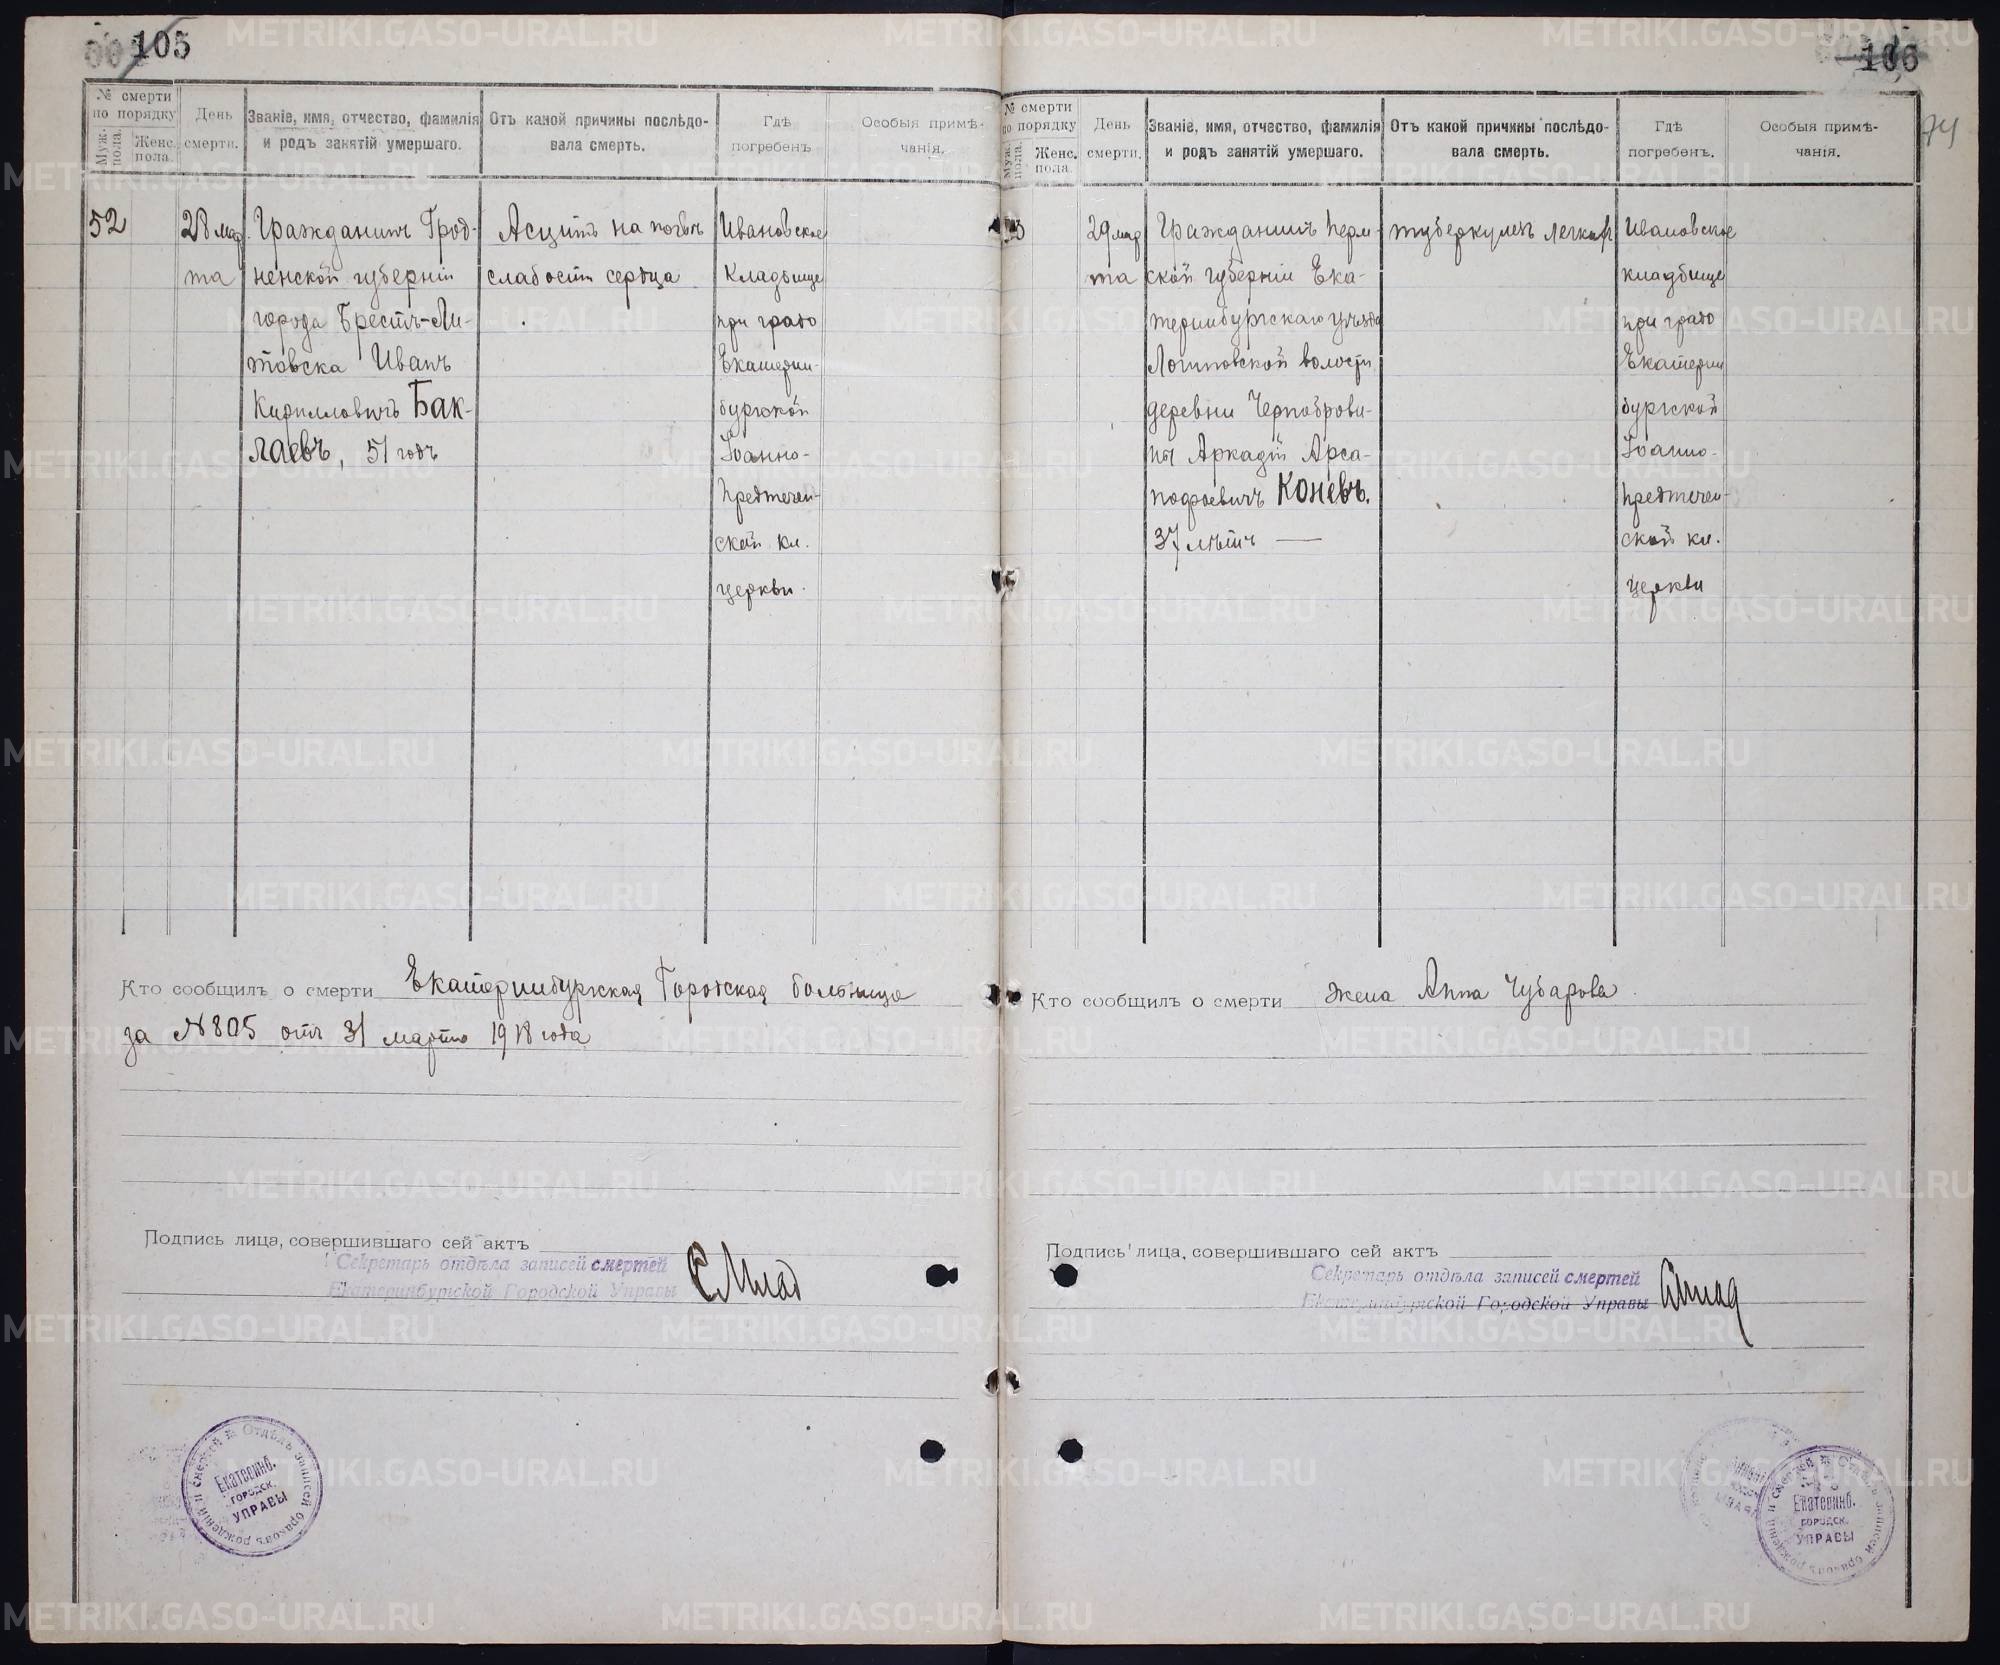 105
№ смерти по порядку
Муж. пола.
Женс. пола.
День смерти.
Званіе, имя, отчество, фамилія и родъ занятій умершаго.
Отъ какой причины послѣдовала смерть.
Гдѣ погребенъ
Особыя примѣчанія.
52
28 мар
та
Гражданинъ Грод-
ненской губерніи
города Брестъ-Ли-
товска Иванъ
Кирилловичъ Бак-
лаевъ, 51 годъ
Асцитъ на почвѣ
слабости сердца
Ивановское
Кладбище
при градо
Екатерин-
бургской
Іоанно-
Предтечен-
ской кл.
церкви.
Кто сообщилъ о смерти Екатеринбургская Городская больница
за №805 отъ 31 марта 1918 года
Подпись лица, совершившаго сей актъ
Секретарь отдѣла записей смертей
Екатеринбургской Городской Управы
Отдѣлъ записей браковъ рожденій и смертей
Екатеринб.
ГОРОДСК.
УПРАВЫ
106
74
№ смерти по порядку
Муж. пола.
Женс. пола.
День смерти.
Званіе, имя, отчество, фамилія и родъ занятій умершаго.
Отъ какой причины послѣдовала смерть.
Гдѣ погребенъ.
Особыя примѣчанія.
29 мар
та
Гражданинъ Перм-
ской губерніи Ека-
теринбургскаго уѣзда
Логиновской волости
деревни Черноброви-
ны Аркадій Арса-
Коневъ.
37 лѣтъ —
туберкулезъ легкихъ
Ивановское
кладбище
при градо
Екатерин
бургской
Іоанно-
Предтечен-
ской кл.
церкви
Кто сообщилъ о смерти жена Анна Чубарова.
Подпись лица, совершившаго сей актъ
Секретарь отдѣла записей смертей
Екатеринбургской Городской Управы
Отдѣлъ записей браковъ рожденій и смертей
Екатеринб.
ГОРОДСК.
УПРАВЫ
METRIKI.GASO-URAL.RU